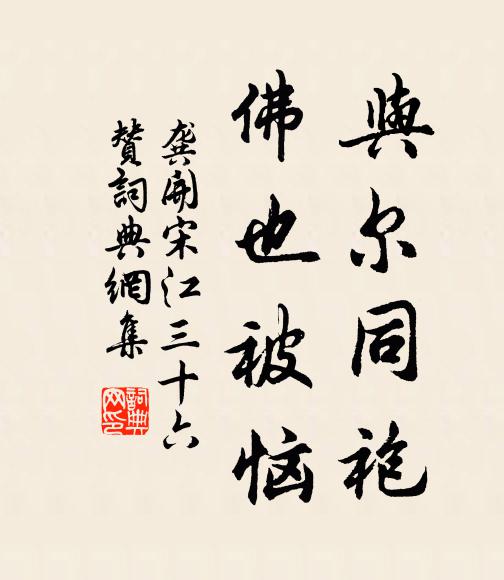 與尔同袍
佛也被恼
龚開宋江三十六
贊詞典網集
詞典网印